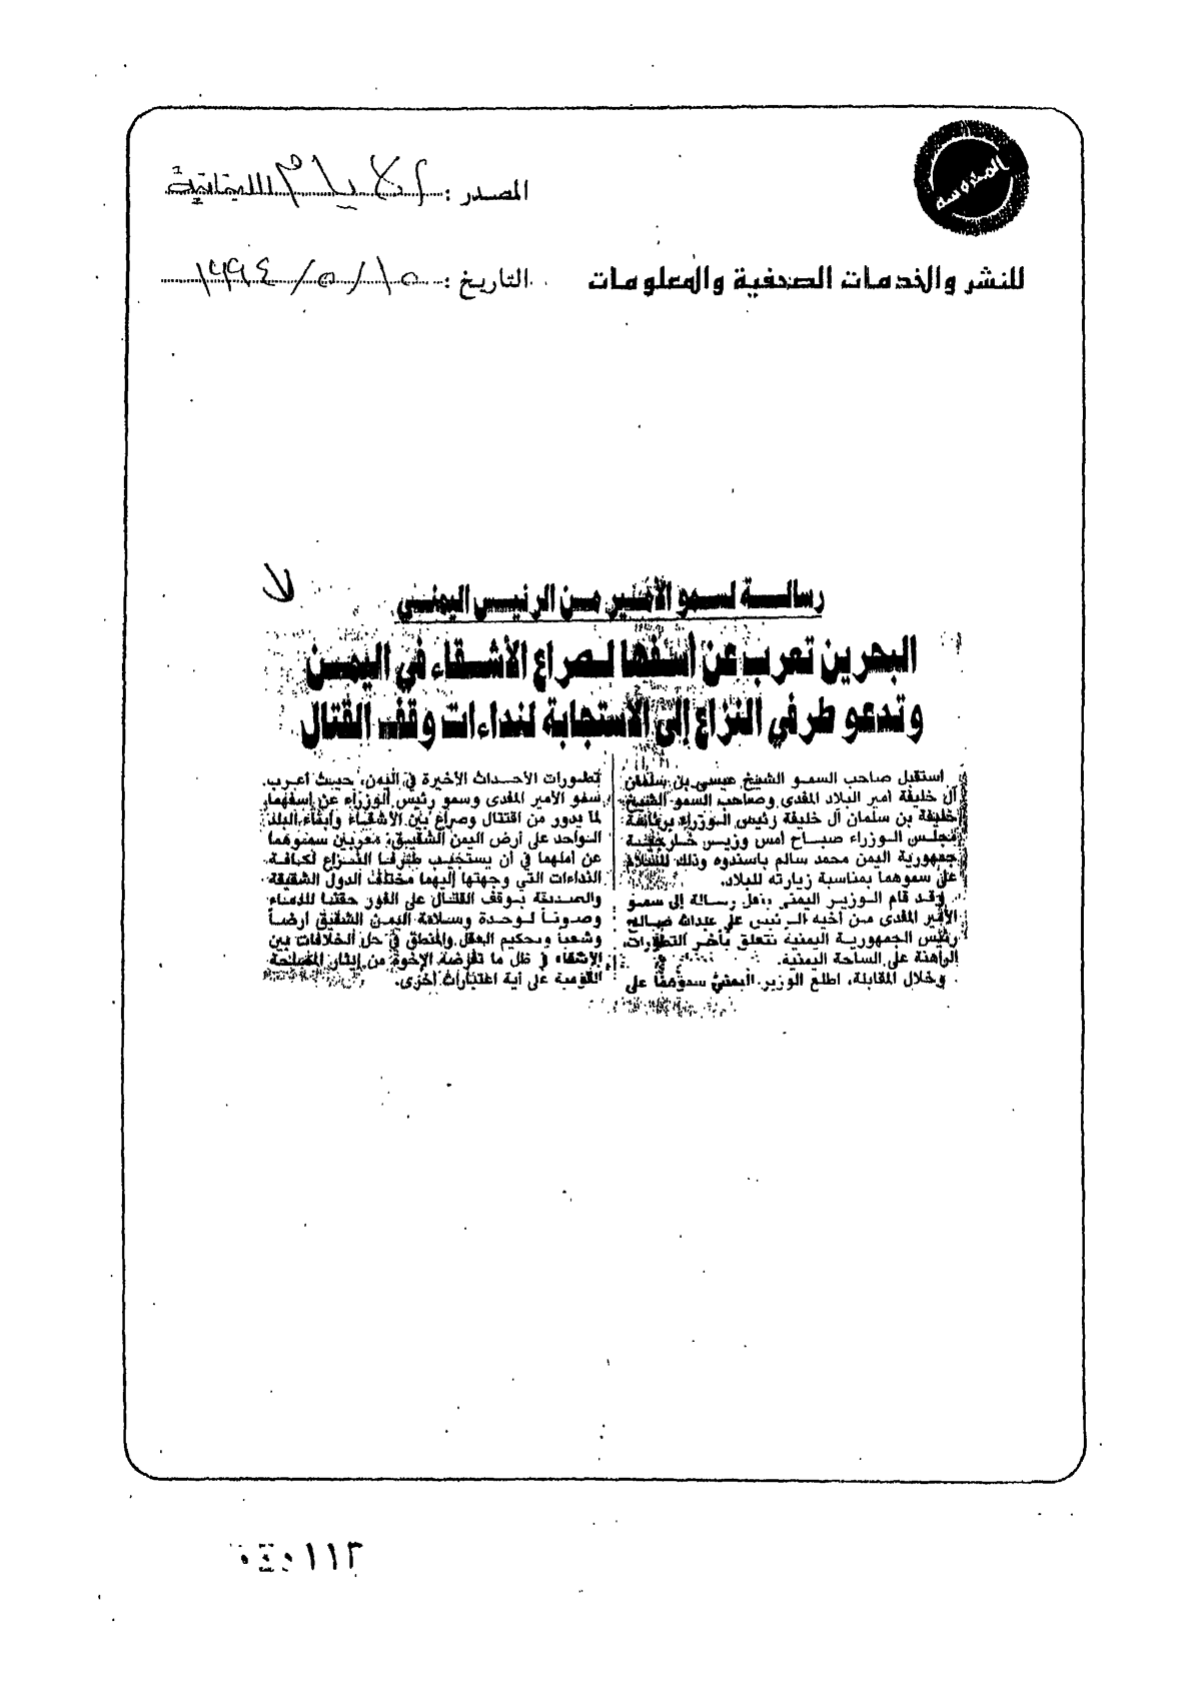 المحروسة
المصدر : الأيام اللبنانية
للنشر والخدمات الصحفية والمعلومات
التاريخ : ١٥ / ٥ / ١٩٩٤
رسالة لسمو الأمير من الرئيس اليمني
البحرين تعرب عن أسفها لصراع الأشقاء في اليمن
وتدعو طرفي النزاع إلى الاستجابة لنداءات وقف القتال
استقبل صاحب السمو الشيخ عيسى بن سلمان
آل خليفة أمير البلاد المفدى وصاحب السمو الشيخ
خليفة بن سلمان آل خليفة رئيس الوزراء برئاسة
مجلس الوزراء صباح أمس وزير خارجية
جمهورية اليمن محمد سالم باسندوه وذلك للسلام
على سموهما بمناسبة زيارته للبلاد.
وقد قام الوزير اليمني بنقل رسالة إلى سمو
الأمير المفدى من أخيه الرئيس علي عبدالله صالح
رئيس الجمهورية اليمنية تتعلق بآخر التطورات
الراهنة على الساحة اليمنية.
وخلال المقابلة، اطلع الوزير اليمني سموهما على
تطورات الأحداث الأخيرة في اليمن، حيث أعرب
سمو الأمير المفدى وسمو رئيس الوزراء عن أسفهما
لما يدور من اقتتال وصراع بين الأشقاء وأبناء البلد
الواحد على أرض اليمن الشقيق، معربين سموهما
عن أملهما في أن يستجيب طرفا النزاع لكافة
النداءات التي وجهتها إليهما مختلف الدول الشقيقة
والصديقة بوقف القتال على الفور حقنا للدماء
وصوناً لوحدة وسلامة اليمن الشقيق أرضاً
وشعباً وتحكيم العقل والمنطق في حل الخلافات بين
الأشقاء في ظل ما تفرضه الإخوة من إيثار المصلحة
القومية على أية اعتبارات أخرى.
١١٣